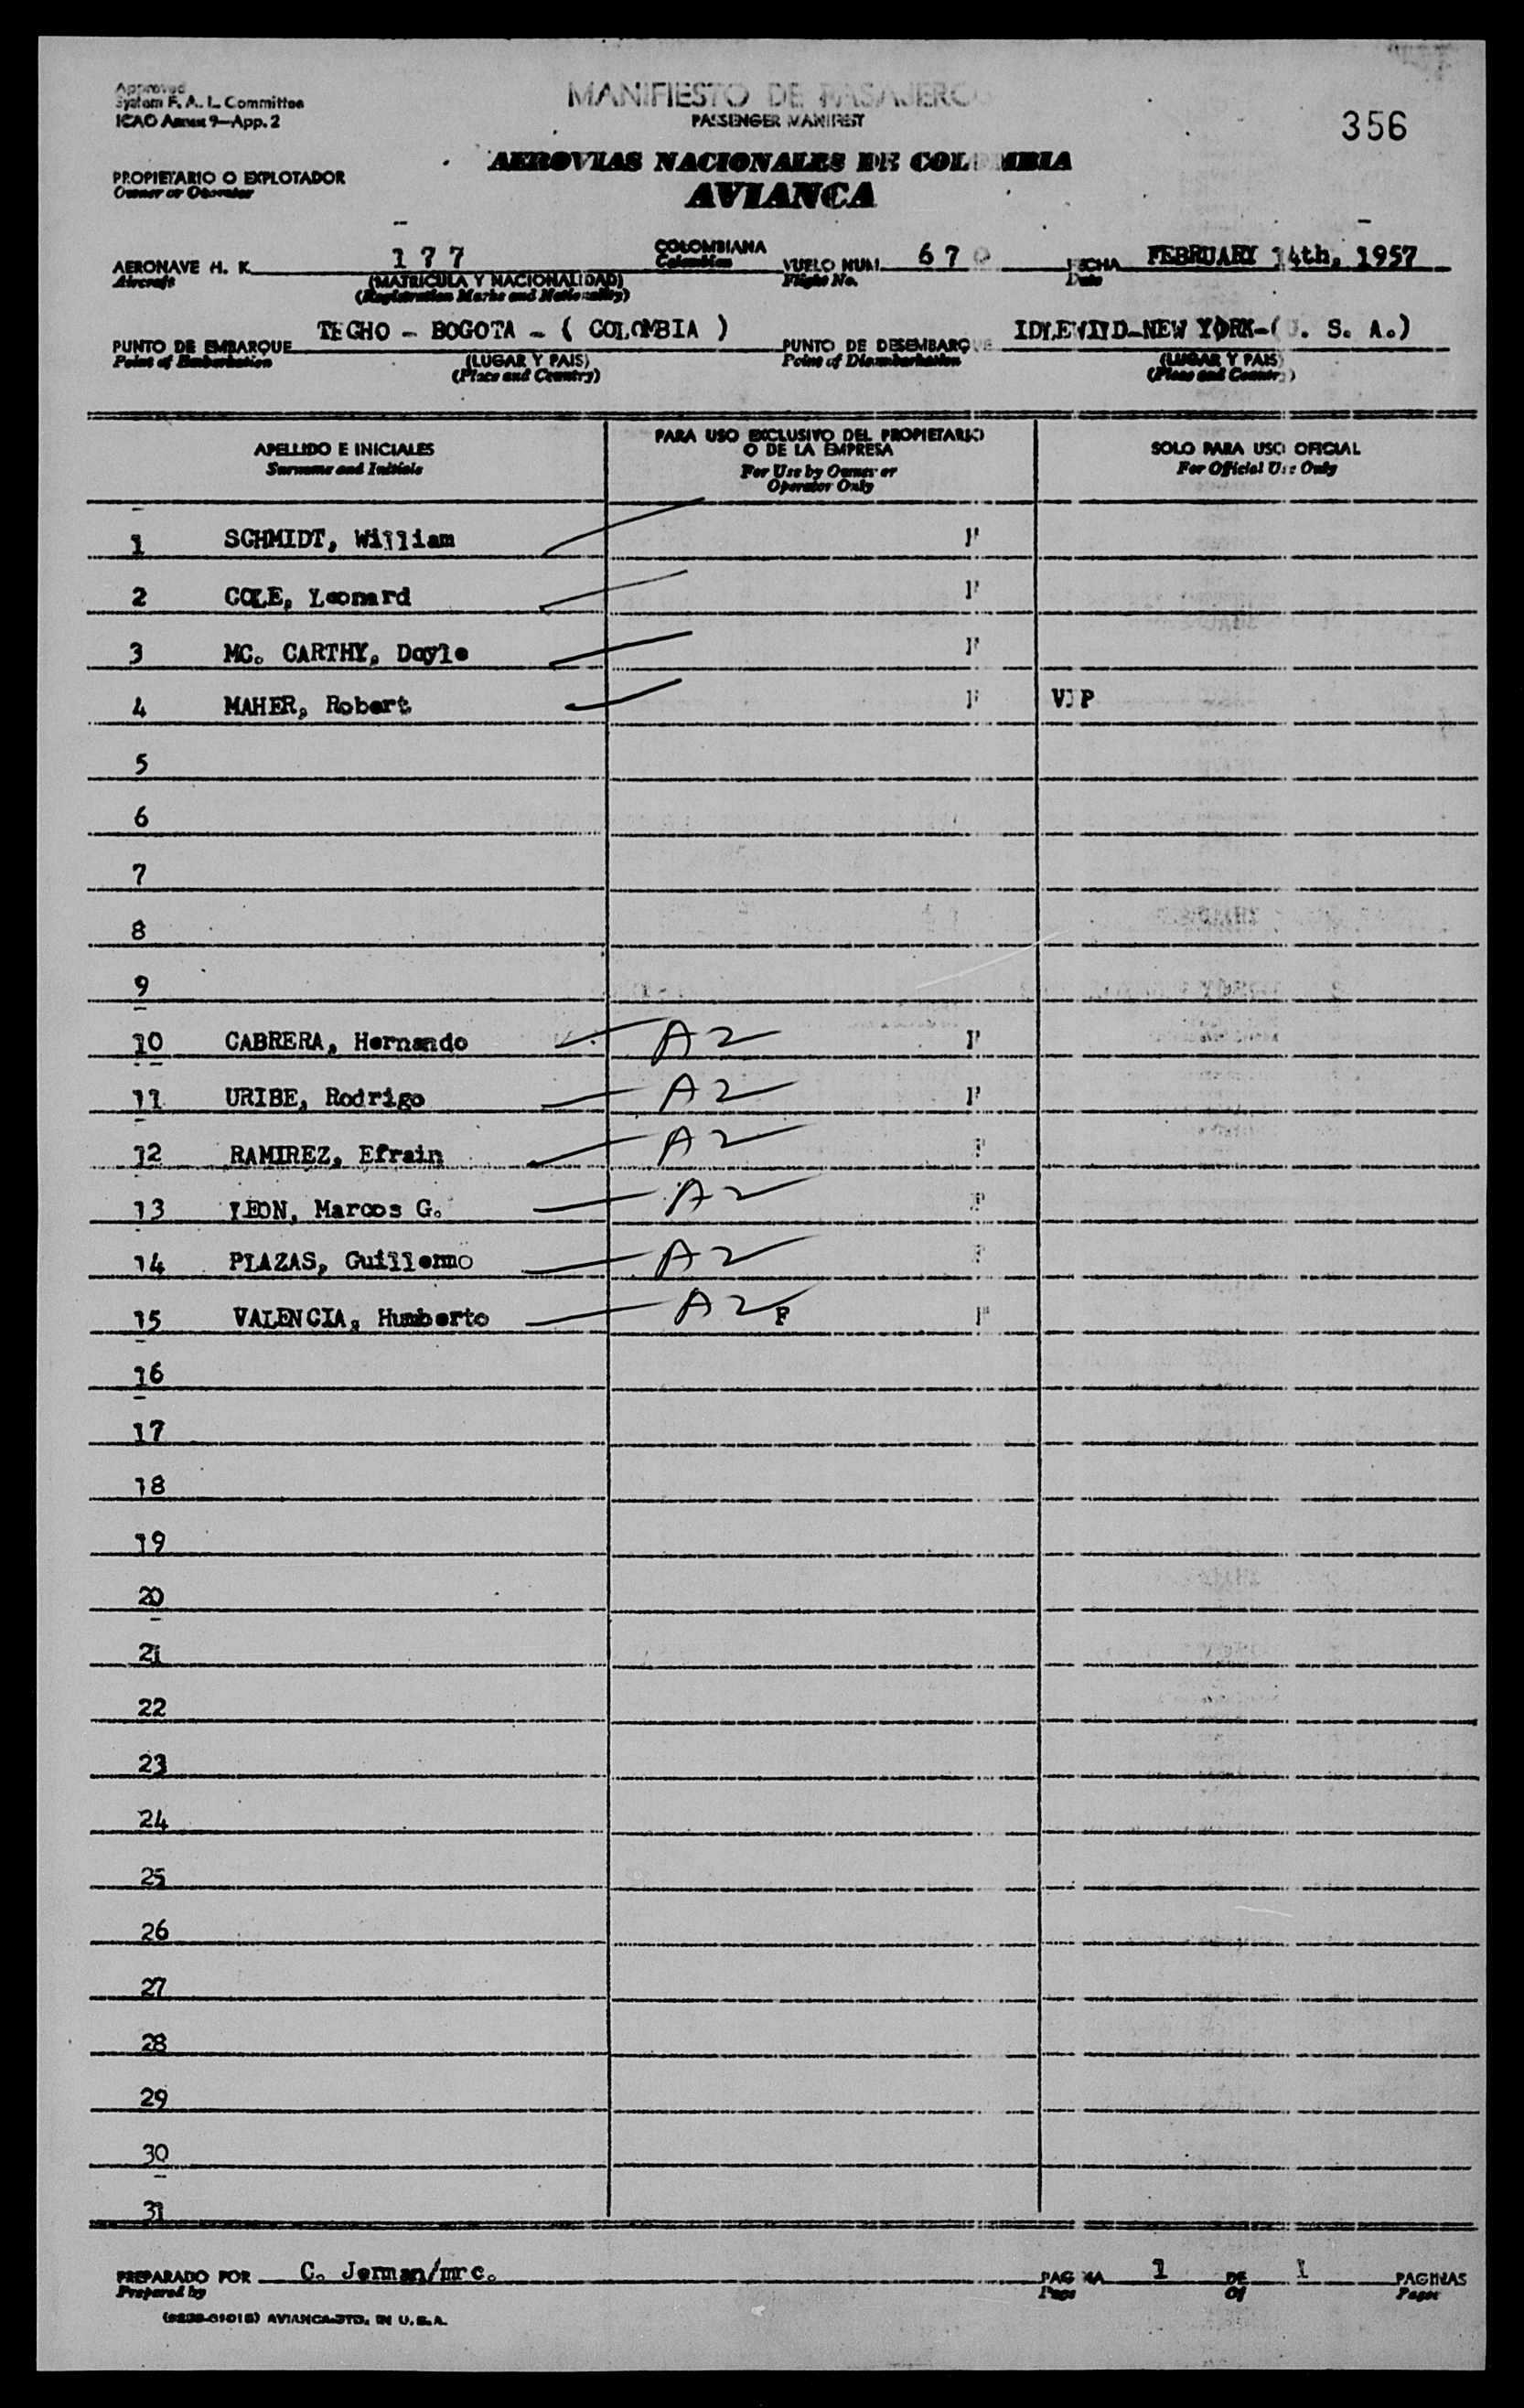 Approved
System F. A. L. Committee
ICAO Annex 9—App. 2
MANIFIESTO DE PASAJEROS
PASSENGER MANIFEST
356
AEROVIAS NACIONALES DE COLOMBIA
AVIANCA
PROPIETARIO O EXPLOTADOR
Owner or Operator
AERONAVE H. K. 177 COLOMBIANA VUELO NUM. 670 FECHA FEBRUARY 14th, 1957
Aircraft (MATRICULA Y NACIONALIDAD) Colombian Flight No. Date
(Registration Marks and Nationality)
PUNTO DE EMBARQUE TECHO - BOGOTA - ( COLOMBIA ) PUNTO DE DESEMBARQUE IDLEWILD-NEW YORK-(U. S. A.)
Point of Embarkation (LUGAR Y PAIS) Point of Disembarkation (LUGAR Y PAIS)
(Place and Country) (Place and Country)
APELLIDO E INICIALES
Surname and Initials
PARA USO EXCLUSIVO DEL PROPIETARIO
O DE LA EMPRESA
For Use by Owner or
Operator Only
SOLO PARA USO OFICIAL
For Official Use Only
1 SCHMIDT, William F
2 COLE, Leonard F
3 MC. CARTHY, Doyle F
4 MAHER, Robert F VIP
5
6
7
8
9
10 CABRERA, Hernando A2 F
11 URIBE, Rodrigo A2 F
12 RAMIREZ, Efrain A2 F
13 LEON, Marcos G. A2 F
14 PLAZAS, Guillermo A2 F
15 VALENCIA, Humberto A2 F F
16
17
18
19
20
21
22
23
24
25
26
27
28
29
30
31
PREPARADO POR C. Jerman/mrc. PAGINA 1 DE 1 PAGINAS
Prepared by Page Of Pages
AVIANCA-STD. IN U.S.A.